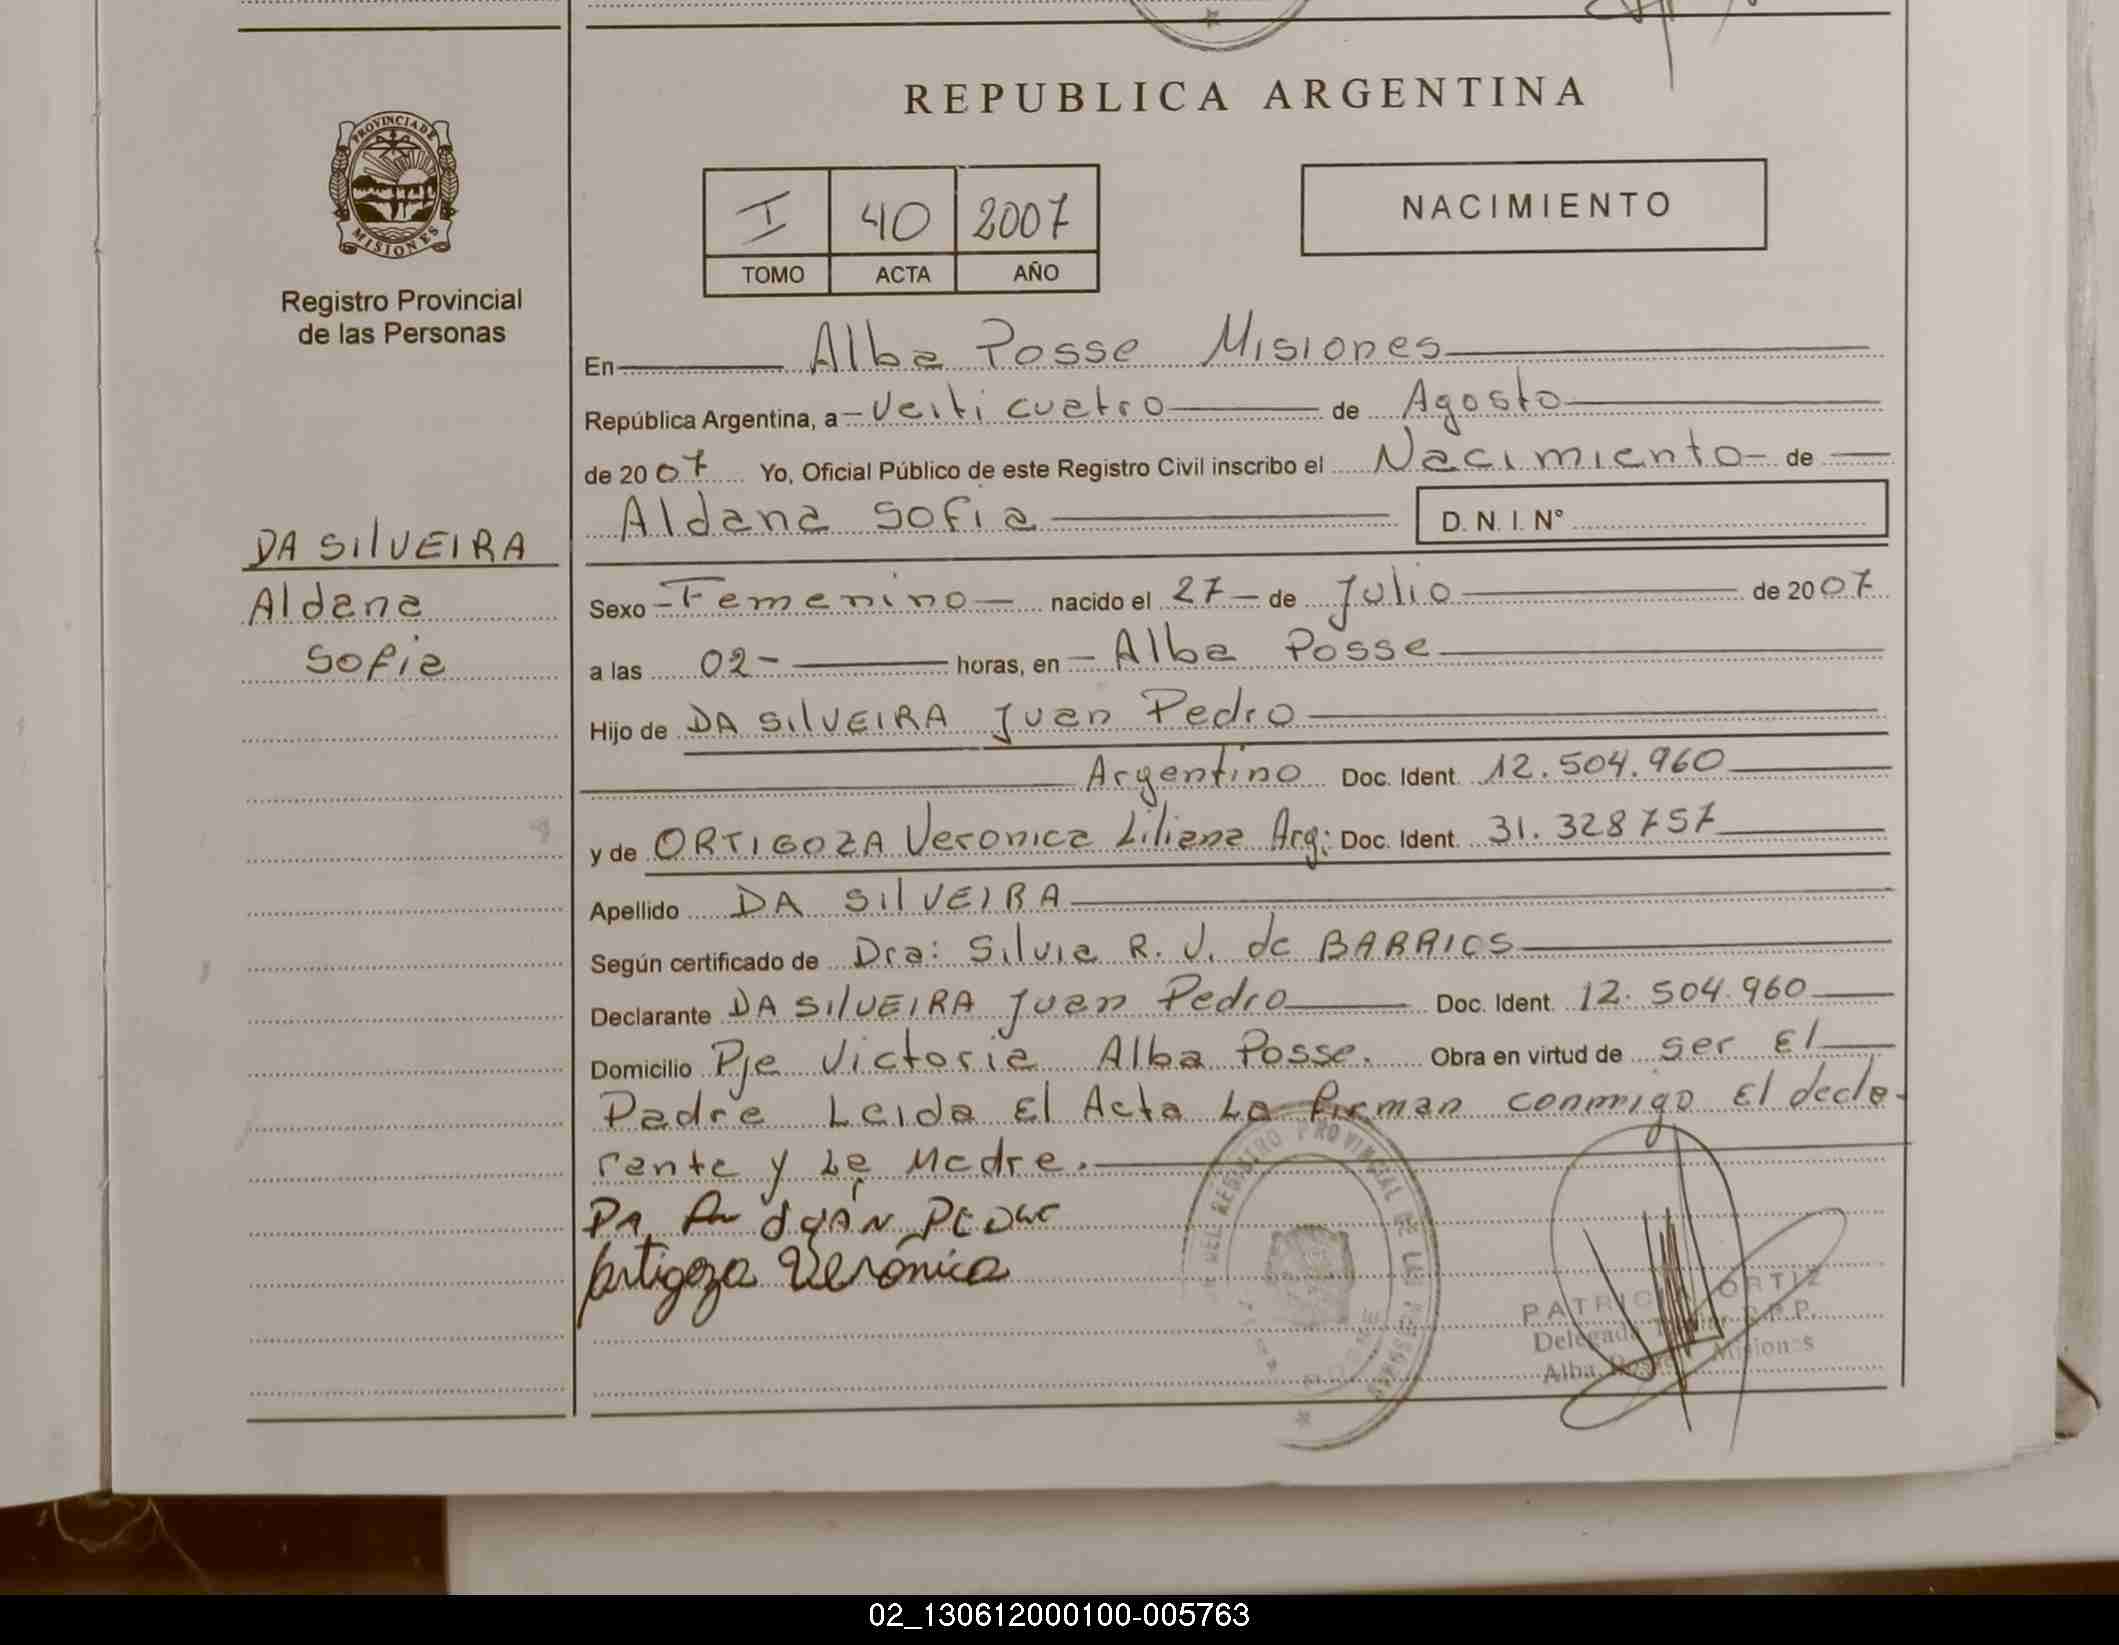 REPUBLICA ARGENTINA
PROVINCIA DE
MISIONES
Registro Provincial
de las Personas
I 40 2007
TOMO ACTA AÑO
NACIMIENTO
En Alba Posse Misiones
República Argentina, a Veiti cuatro de Agosto
de 2007 Yo, Oficial Público de este Registro Civil inscribo el Nacimiento de
Aldana Sofia D. N. I. N°
DA SilVEIRA
Aldana
Sofia
Sexo Femenino nacido el 27 de Julio de 2007
a las 02 horas, en Alba Posse
Hijo de DA SilVEIRA Juan Pedro
Argentino Doc. Ident. 12.504.960
y de ORTIGOZA Veronica Liliana Arg: Doc. Ident. 31.328757
Apellido DA SilVEIRA
Según certificado de Dra: Silvia R. J. de BARRIOS
Declarante DA SilVEIRA Juan Pedro Doc. Ident. 12.504.960
Domicilio Pje Victoria Alba Posse. Obra en virtud de ser El
Padre Leida El Acta La firman conmigo El decla-
rante y La Madre.
Juan Pedro
Ortigoza Verónica
DEL REGISTRO PROVINCIAL DE LAS PERSONAS
PATRICIA ORTIZ
Delegada R.P.P.
Alba Posse Misiones
02_130612000100-005763